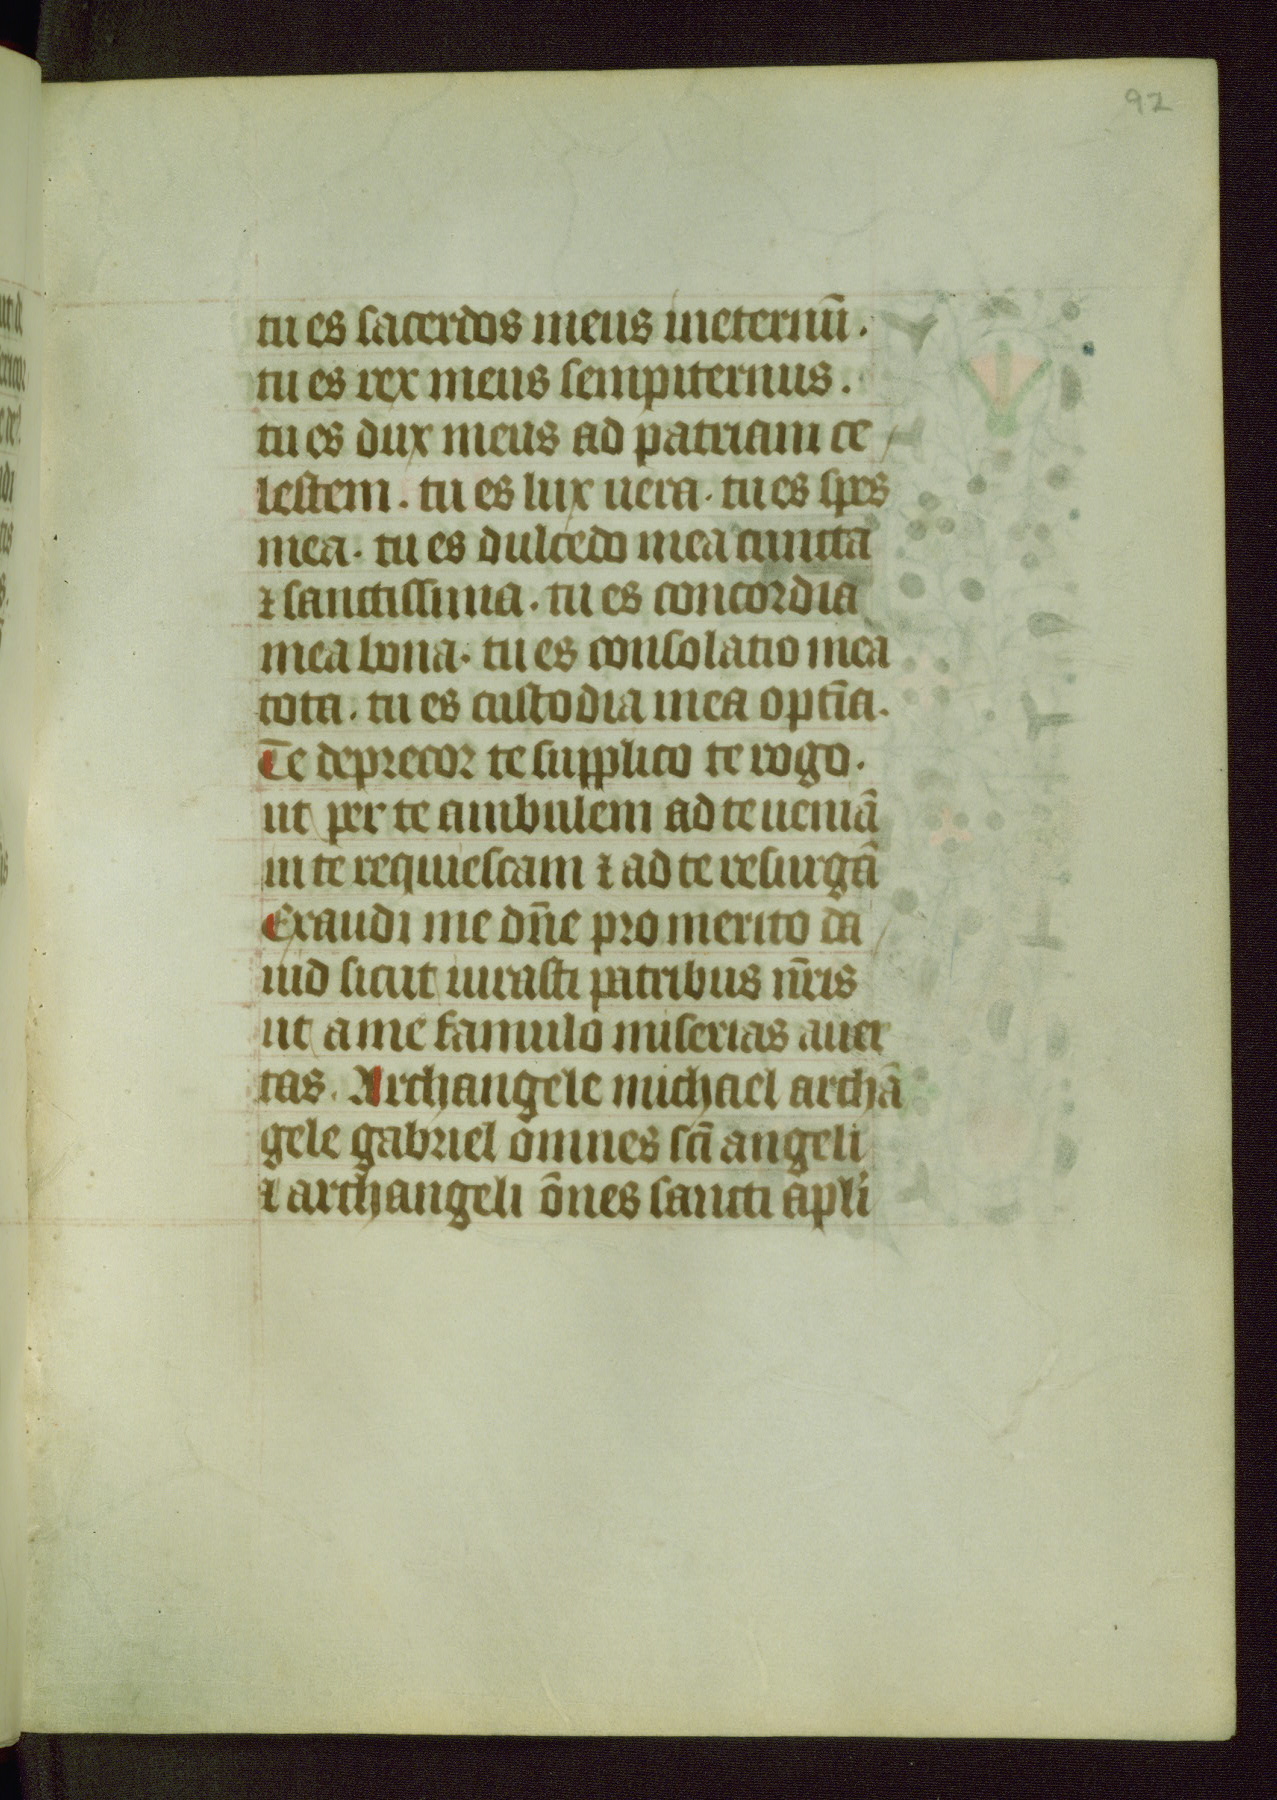 92
tu es sacerdos meus ineternū.
tu es rex meus sempiternus.
tu es dux meus ad patriam ce
lestem. tu es lux uera. tu es spes
mea. tu es dulcedo mea cuncta
⁊ sanctissima. tu es concordia
mea bona. tu es consolatio mea
tota. tu es custodia mea optīa.
Te deprecor te supplico te rogo.
ut per te ambulem ad te ueniā
in te requiescam ⁊ ad te resurgā
Exaudi me dn̄e pro merito da
uid sicut iurasti patribus nr̄is
ut a me famulo miserias auer
tas. Archangele michael archā
gele gabriel omnes sc̄i angeli
⁊ archangeli ōnes sancti apl̄i